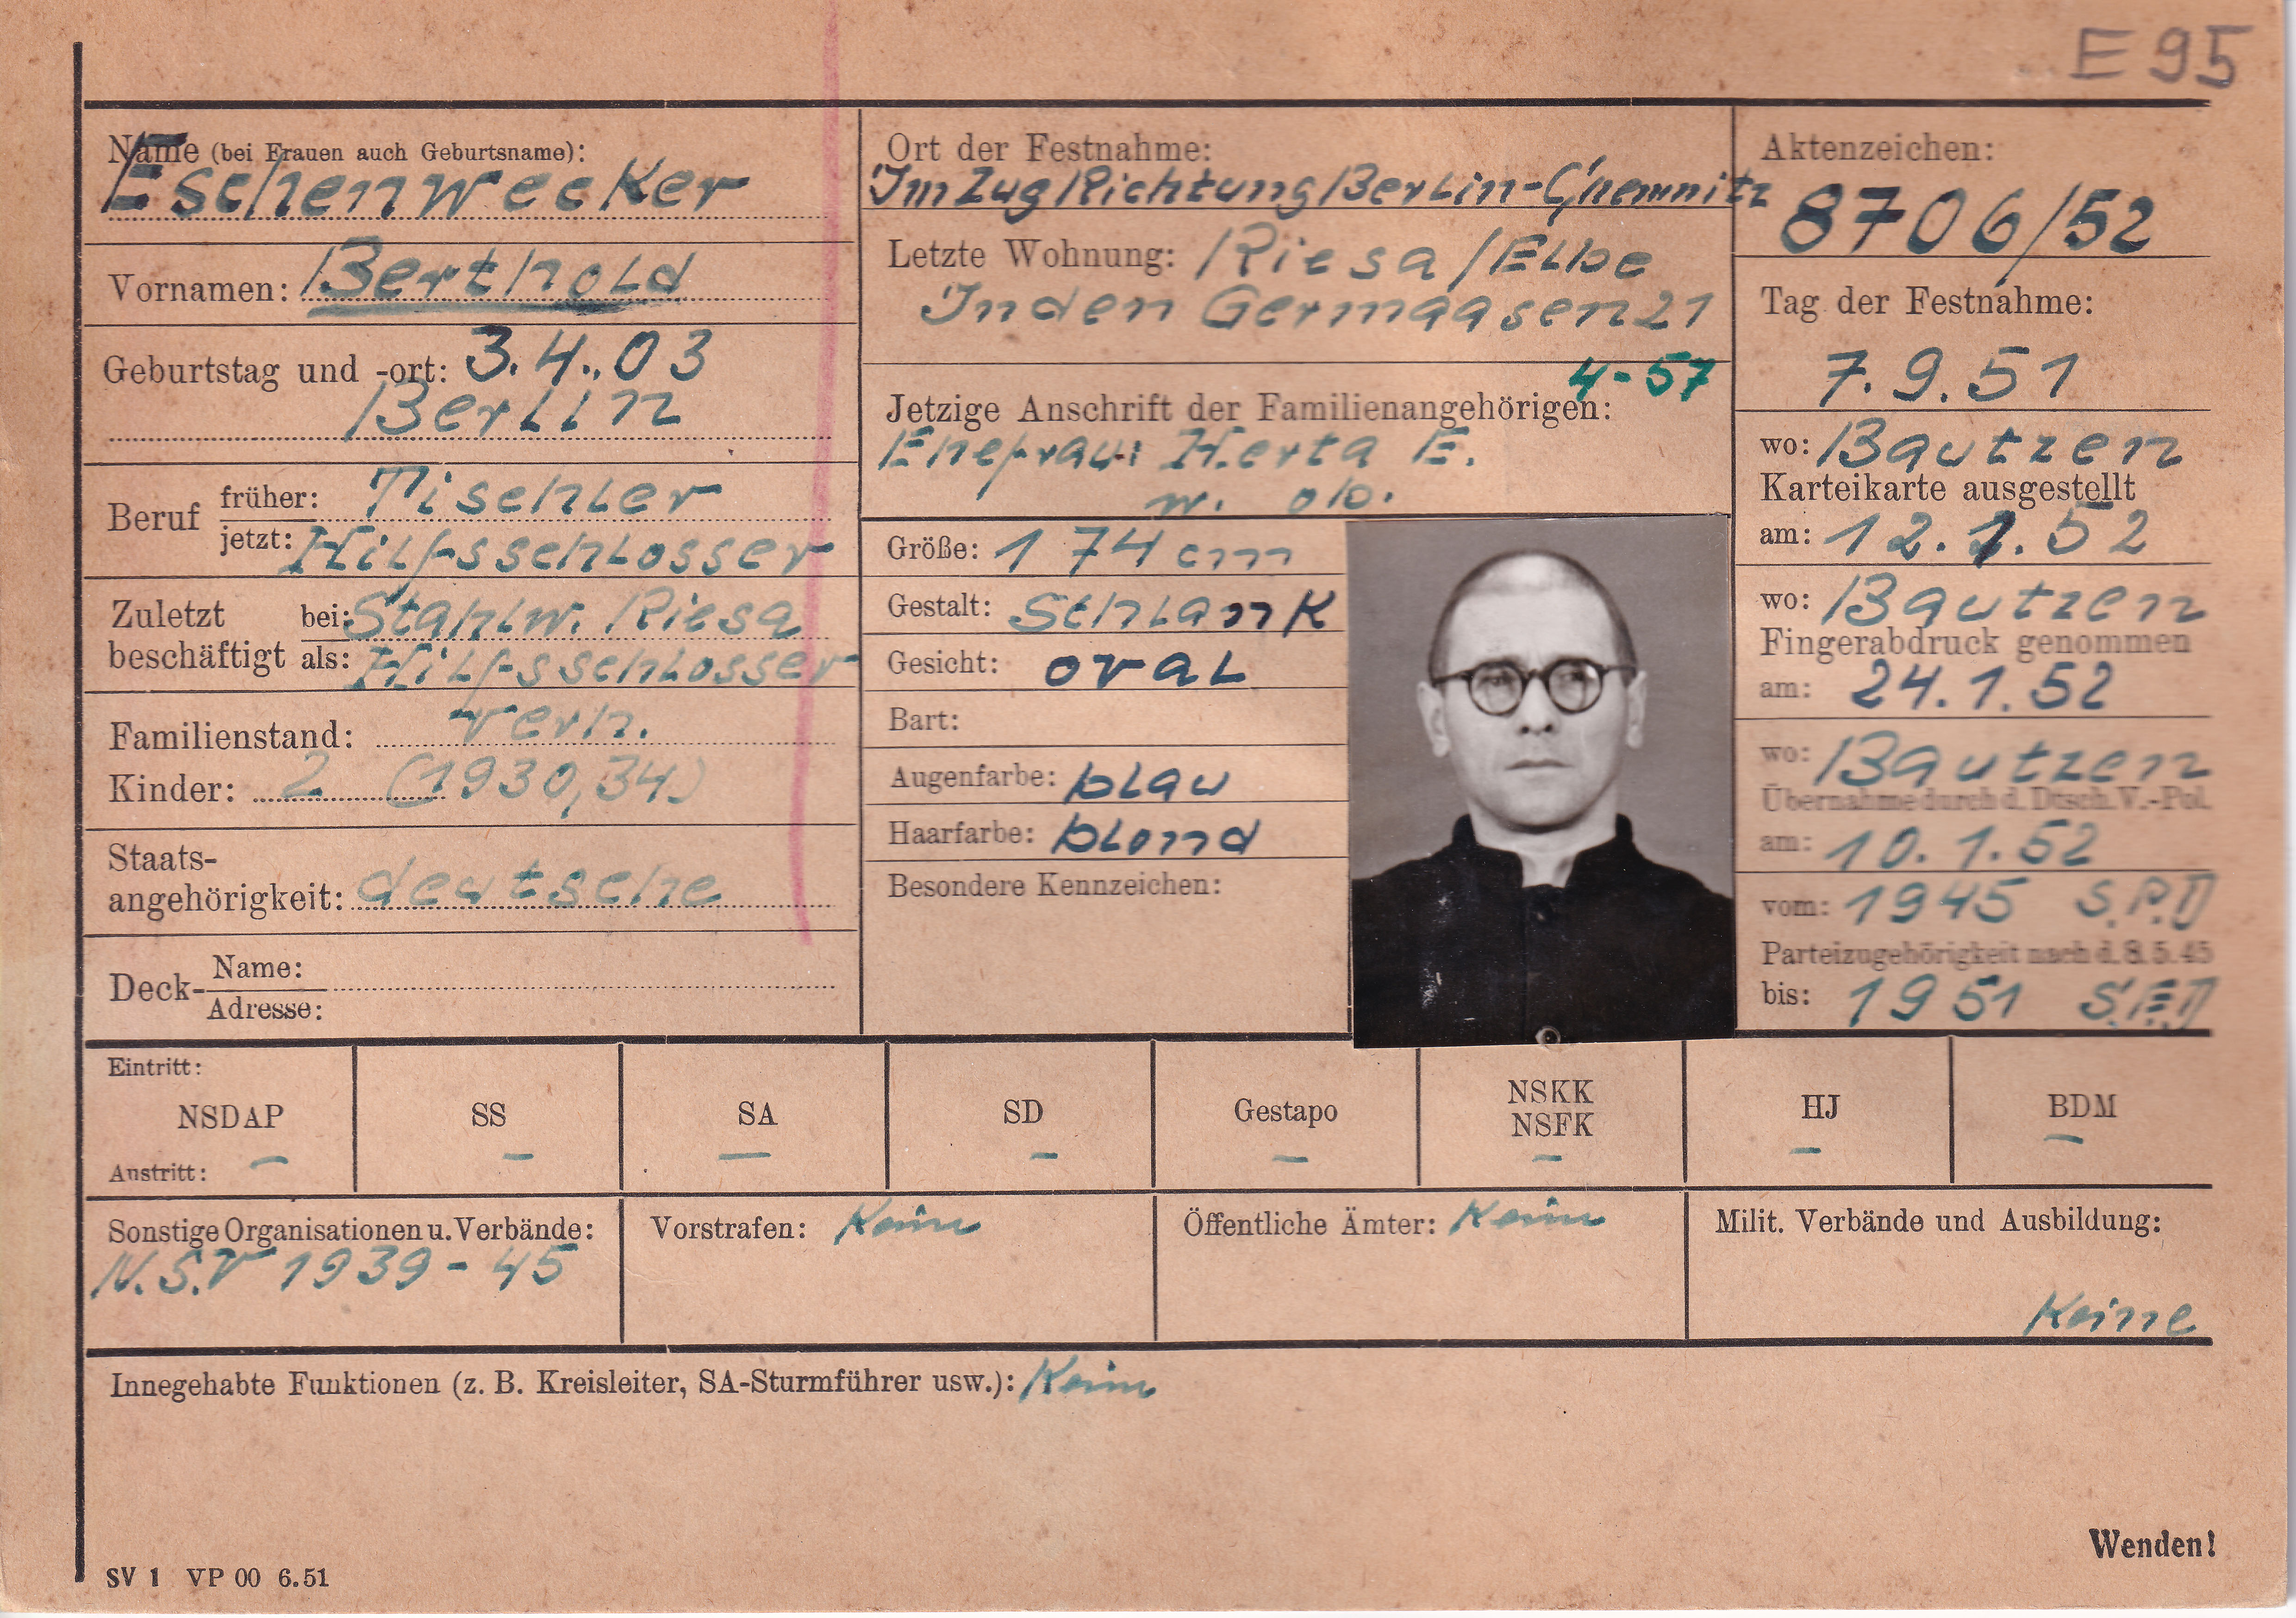 E 95
Name (bei Frauen auch Geburtsname):
Eschenwecker
Vornamen: Berthold
Geburtstag und -ort: 3.4.03
Berlin
Beruf früher: Tischler
jetzt: Hilfsschlosser
Zuletzt beschäftigt bei: Stahlw. Riesa
als: Hilfsschlosser
Familienstand: verh.
Kinder: 2 (1930,34)
Staats-
angehörigkeit: deutsche
Deck- Name:
Adresse:
Ort der Festnahme:
Im Zug Richtung Berlin-Chemnitz
Letzte Wohnung: Riesa/Elbe
In den Germaasen 21
4-57
Jetzige Anschrift der Familienangehörigen:
Ehefrau: Herta E.
w. ob.
Größe: 174 cm
Gestalt: schlank
Gesicht: oval
Bart:
Augenfarbe: blau
Haarfarbe: blond
Besondere Kennzeichen:
Aktenzeichen:
8706/52
Tag der Festnahme:
7.9.51
wo: Bautzen
Karteikarte ausgestellt
am: 12.1.52
wo: Bautzen
Fingerabdruck genommen
am: 24.1.52
wo: Bautzen
Übernahme durch d. Dtsch. V.-Pol.
am: 10.1.52
vom: 1945 S.P.D
Parteizugehörigkeit nach d. 8.5.45
bis: 1951 S.E.D
Eintritt:
NSDAP SS SA SD Gestapo NSKK NSFK HJ BDM
– – – – – – – –
Austritt:
Sonstige Organisationen u. Verbände:
N.S.V 1939 - 45
Vorstrafen: Keine
Öffentliche Ämter: Keine
Milit. Verbände und Ausbildung:
Keine
Innegehabte Funktionen (z. B. Kreisleiter, SA-Sturmführer usw.): Keine
Wenden!
SV 1 VP 00 6.51